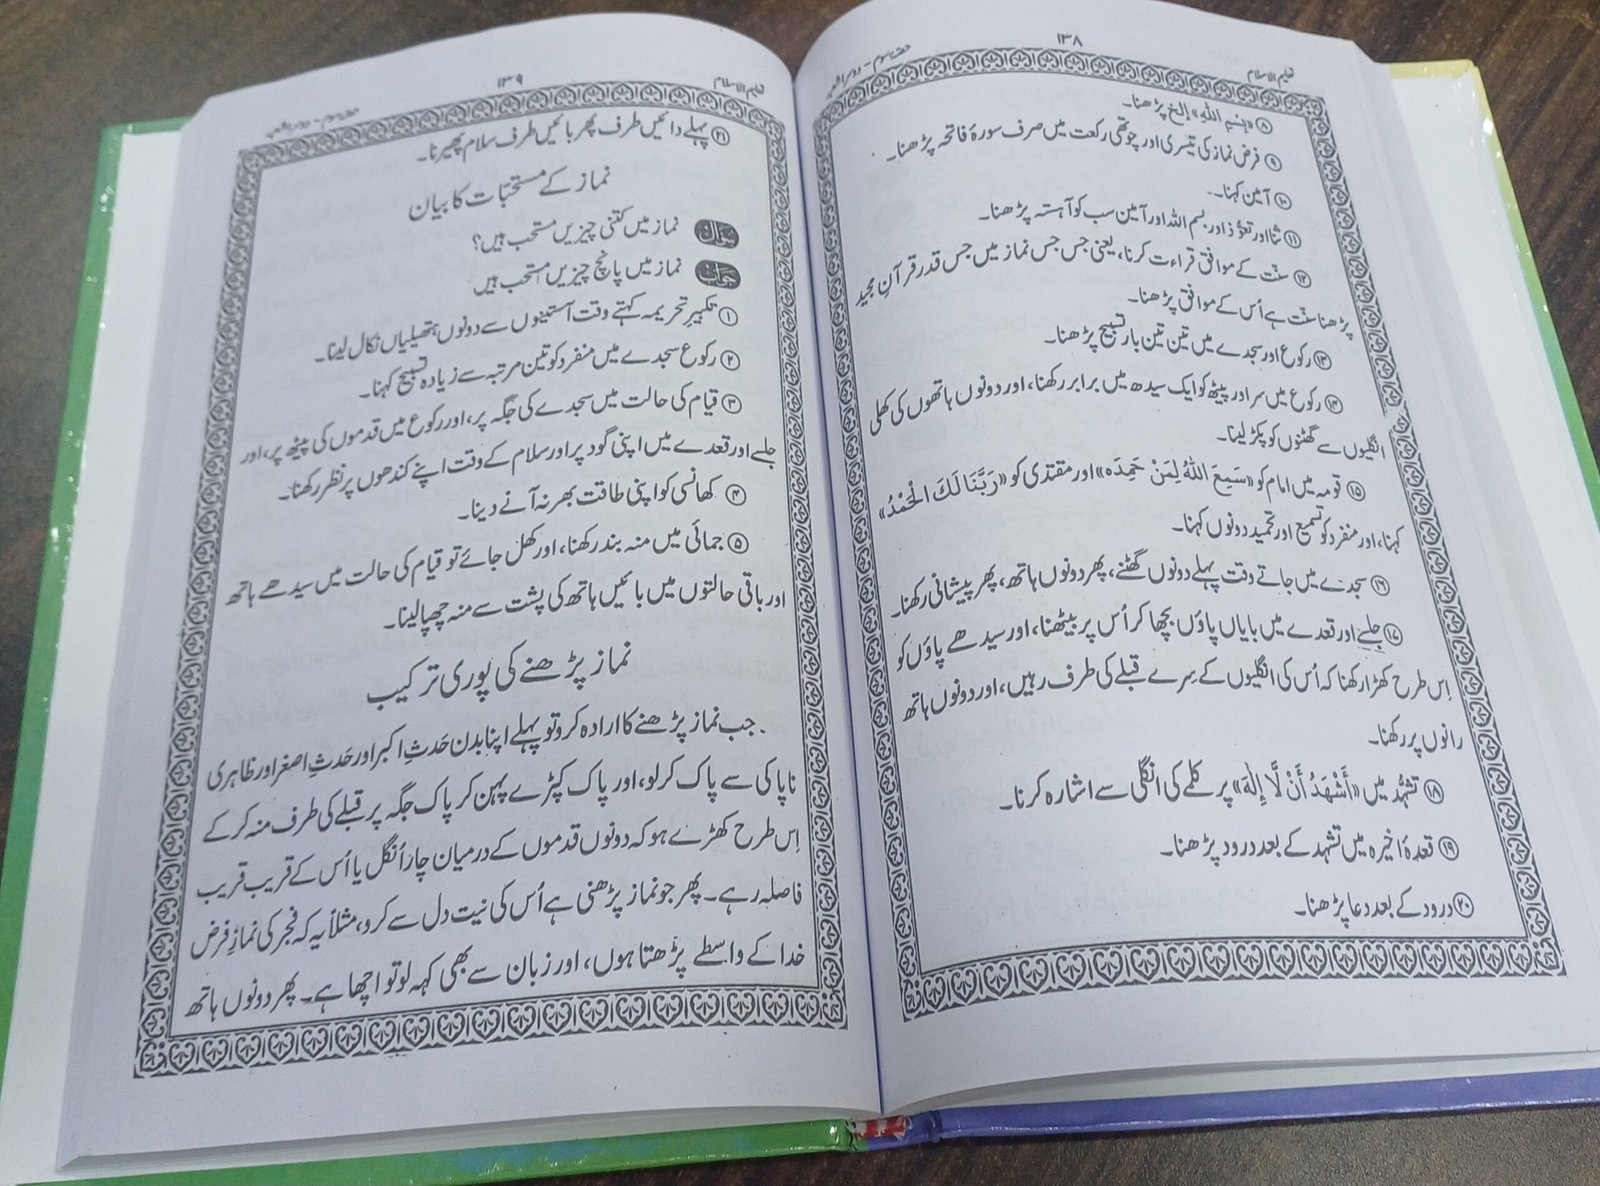 تعلیم الاسلام
۱۳۸
حصّہ سوم - دوسرا شعبہ
⑧ «بِسْمِ اللّٰهِ» إلخ پڑھنا۔
⑨ فرض نماز کی تیسری اور چوتھی رکعت میں صرف سورۂ فاتحہ پڑھنا۔
⑩ آمین کہنا۔
⑪ ثنا اور تعوّذ اور بسم اللہ اور آمین سب کو آہستہ پڑھنا۔
⑫ سنّت کے موافق قراءت کرنا، یعنی جس جس نماز میں جس قدر قرآنِ مجید
پڑھنا سنّت ہے اُس کے موافق پڑھنا۔
⑬ رکوع اور سجدے میں تین تین بار تسبیح پڑھنا۔
⑭ رکوع میں سر اور پیٹھ کو ایک سیدھ میں برابر رکھنا، اور دونوں ہاتھوں کی کھلی
انگلیوں سے گھٹنوں کو پکڑ لینا۔
⑮ قومہ میں امام کو «سَمِعَ اللّٰهُ لِمَنْ حَمِدَه» اور مقتدی کو «رَبَّنَا لَكَ الْحَمْدُ»
کہنا، اور منفرد کو تسمیع اور تحمید دونوں کہنا۔
⑯ سجدے میں جاتے وقت پہلے دونوں گھٹنے، پھر دونوں ہاتھ، پھر پیشانی رکھنا۔
⑰ جلسے اور قعدے میں بایاں پاؤں بچھا کر اُس پر بیٹھنا، اور سیدھے پاؤں کو
اِس طرح کھڑا رکھنا کہ اُس کی انگلیوں کے سِرے قبلے کی طرف رہیں، اور دونوں ہاتھ
رانوں پر رکھنا۔
⑱ تشہّد میں «أَشْهَدُ أَنْ لَّا إِلٰهَ» پر کلمے کی انگلی سے اشارہ کرنا۔
⑲ قعدۂ اخیرہ میں تشہد کے بعد درود پڑھنا۔
⑳ درود کے بعد دعا پڑھنا۔
تعلیم الاسلام
۱۳۹
حصّہ سوم - دوسرا شعبہ
㉑ پہلے دائیں طرف پھر بائیں طرف سلام پھیرنا۔
نماز کے مستحبّات کا بیان
سوال نماز میں کتنی چیزیں مستحب ہیں؟
جواب نماز میں پانچ چیزیں مستحب ہیں
① تکبیرِ تحریمہ کہتے وقت آستینوں سے دونوں ہتھیلیاں نکال لینا۔
② رکوع سجدے میں منفرد کو تین مرتبہ سے زیادہ تسبیح کہنا۔
③ قیام کی حالت میں سجدے کی جگہ پر، اور رکوع میں قدموں کی پیٹھ پر، اور
جلسے اور قعدے میں اپنی گود پر اور سلام کے وقت اپنے کندھوں پر نظر رکھنا۔
④ کھانسی کو اپنی طاقت بھر نہ آنے دینا۔
⑤ جمائی میں منہ بند رکھنا، اور کھل جائے تو قیام کی حالت میں سیدھے ہاتھ
اور باقی حالتوں میں بائیں ہاتھ کی پشت سے منہ چھپا لینا۔
نماز پڑھنے کی پوری ترکیب
جب نماز پڑھنے کا ارادہ کرو تو پہلے اپنا بدن حَدثِ اکبر اور حَدثِ اصغر اور ظاہری
ناپاکی سے پاک کرلو، اور پاک کپڑے پہن کر پاک جگہ پر قبلے کی طرف منہ کرکے
اِس طرح کھڑے ہو کہ دونوں قدموں کے درمیان چار اُنگل یا اُس کے قریب قریب
فاصلہ رہے۔ پھر جو نماز پڑھنی ہے اُس کی نیت دل سے کرو، مثلاً یہ کہ فجر کی نمازِ فرض
خدا کے واسطے پڑھتا ہوں، اور زبان سے بھی کہہ لو تو اچھا ہے۔ پھر دونوں ہاتھ